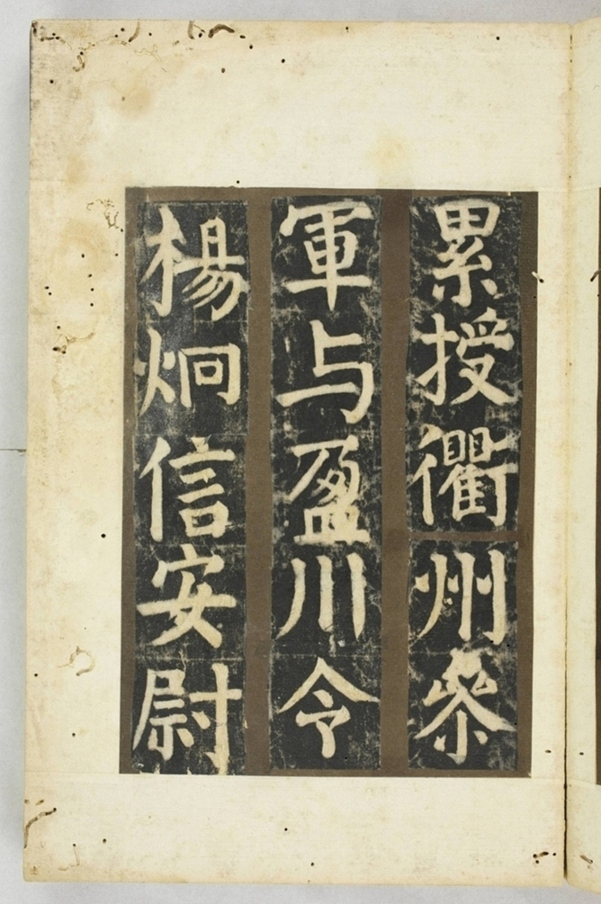 累授衢州叅
軍与盈川令
楊炯信安尉